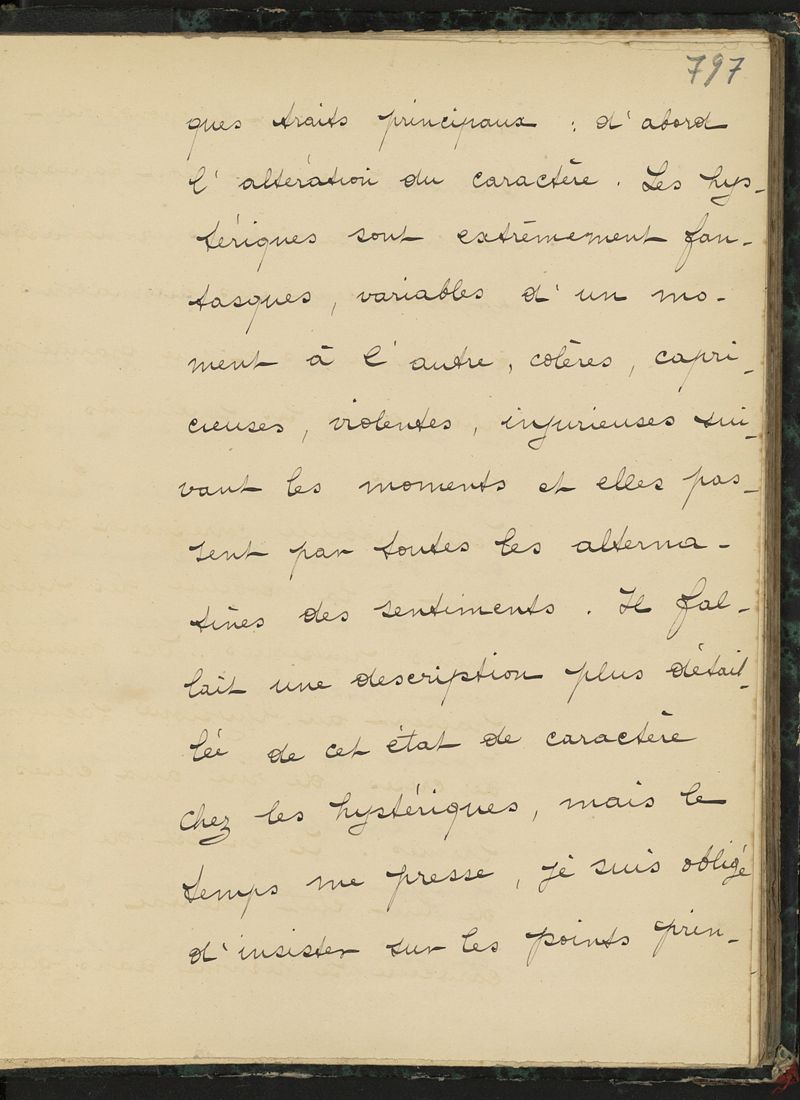 797
ques traits principaux : d'abord
l'altération du caractère. Les hys-
tériques sont extrêmement fan-
tasques, variables d'un mo-
ment à l'autre, colères, capri-
cieuses, violentes, injurieuses sui-
vant les moments et elles pas-
sent par toutes les alterna-
tives des sentiments. Il fal-
lait une description plus détail-
lée de cet état de caractère
chez les hystériques, mais le
temps me presse, je suis obligé
d'insister sur les points prin-